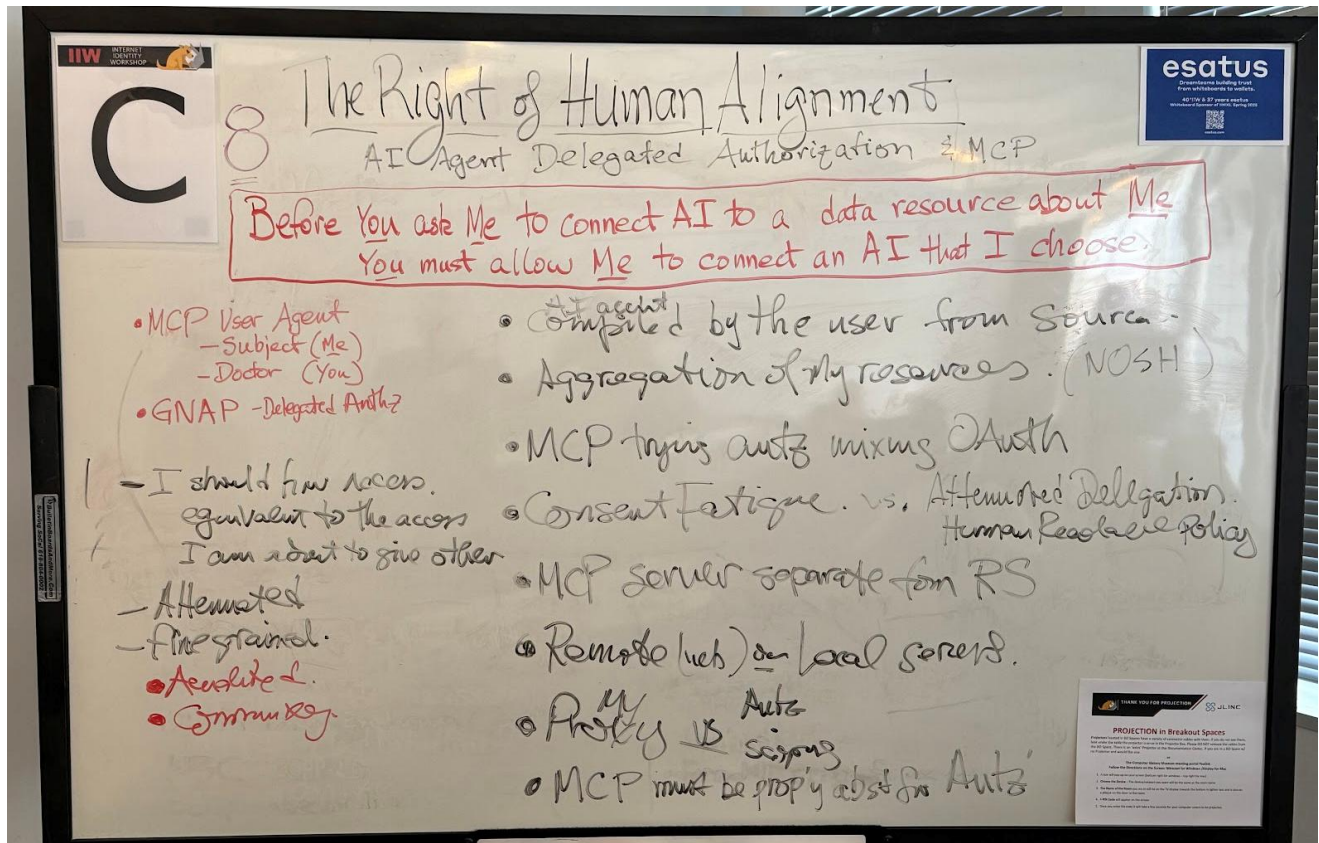 IIW INTERNET IDENTITY WORKSHOP
C
8
The Right of Human Alignment
AI Agent Delegated Authorization & MCP
esatus
Dreamteams building trust
from whiteboards to wallets.
Before You ask Me to connect AI to a data resource about Me
You must allow Me to connect an AI that I choose.
• MCP User Agent
– Subject (Me)
– Doctor (You)
• GNAP – Delegated Authz
– I should have access
equivalent to the access
I am about to give other
– Attenuated
– fine grained.
AI agent
• Compiled by the user from source.
• Aggregation of My resources. (NOSH)
• MCP trying autz mixing OAuth
• Consent Fatigue. vs. Attenuated Delegation.
Human Readable Policy
• MCP server separate from RS
• Remote (web) or local servers.
My
• Proxy vs Autz
scoping
• MCP must be prop'y abst for Autz
THANK YOU FOR PROJECTION JLINC
PROJECTION in Breakout Spaces